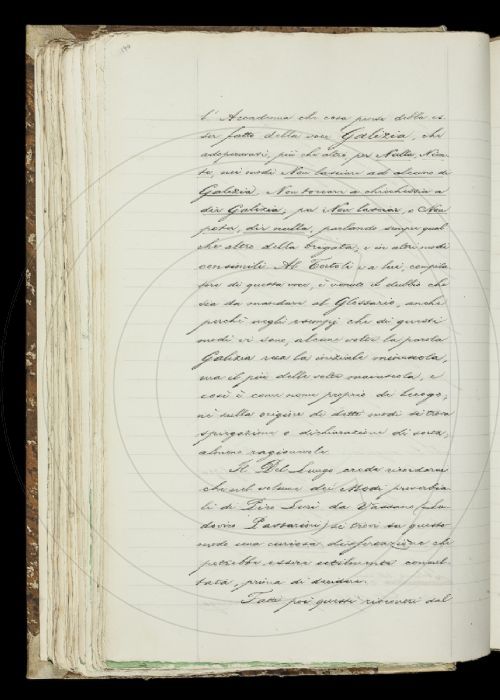 l'Accademia che cosa pensi debba es-
ser fatto della voce Galizia, che
adoperavasi, più che altro per Nulla, Nien-
te, nei modi Non lasciare ad alcuno di
Galizia, Non toccare a chicchessia a
dir Galizia, per Non lasciar, o Non
poter, dir nulla, parlando sempre qual-
che altro della brigata; e in altri modi
consimili. Al Tortoli e a lui, compila-
tore di questa voce, è venuto il dubbio che
sia da mandare al Glossario, anche
perchè negli esempj che di questi
modi vi sono, alcune volte la parola
Galizia reca la iniziale minuscola,
ma il più delle volte maiuscola, e
così è come nome proprio di luogo;
nè sulla origine di detti modi si trova
spiegazione o dichiarazione di sorta,
almeno ragionevole.
Il Del Lungo crede ricordarsi
che nel volume dei Modi proverbia-
li di Pico Luri da Vassano (Lu-
dovico Passarini) si trovi su questo
modo una curiosa dissertazione che
potrebbe essere utilmente consul-
tata, prima di decidere.
Fatti poi questi riscontri dal